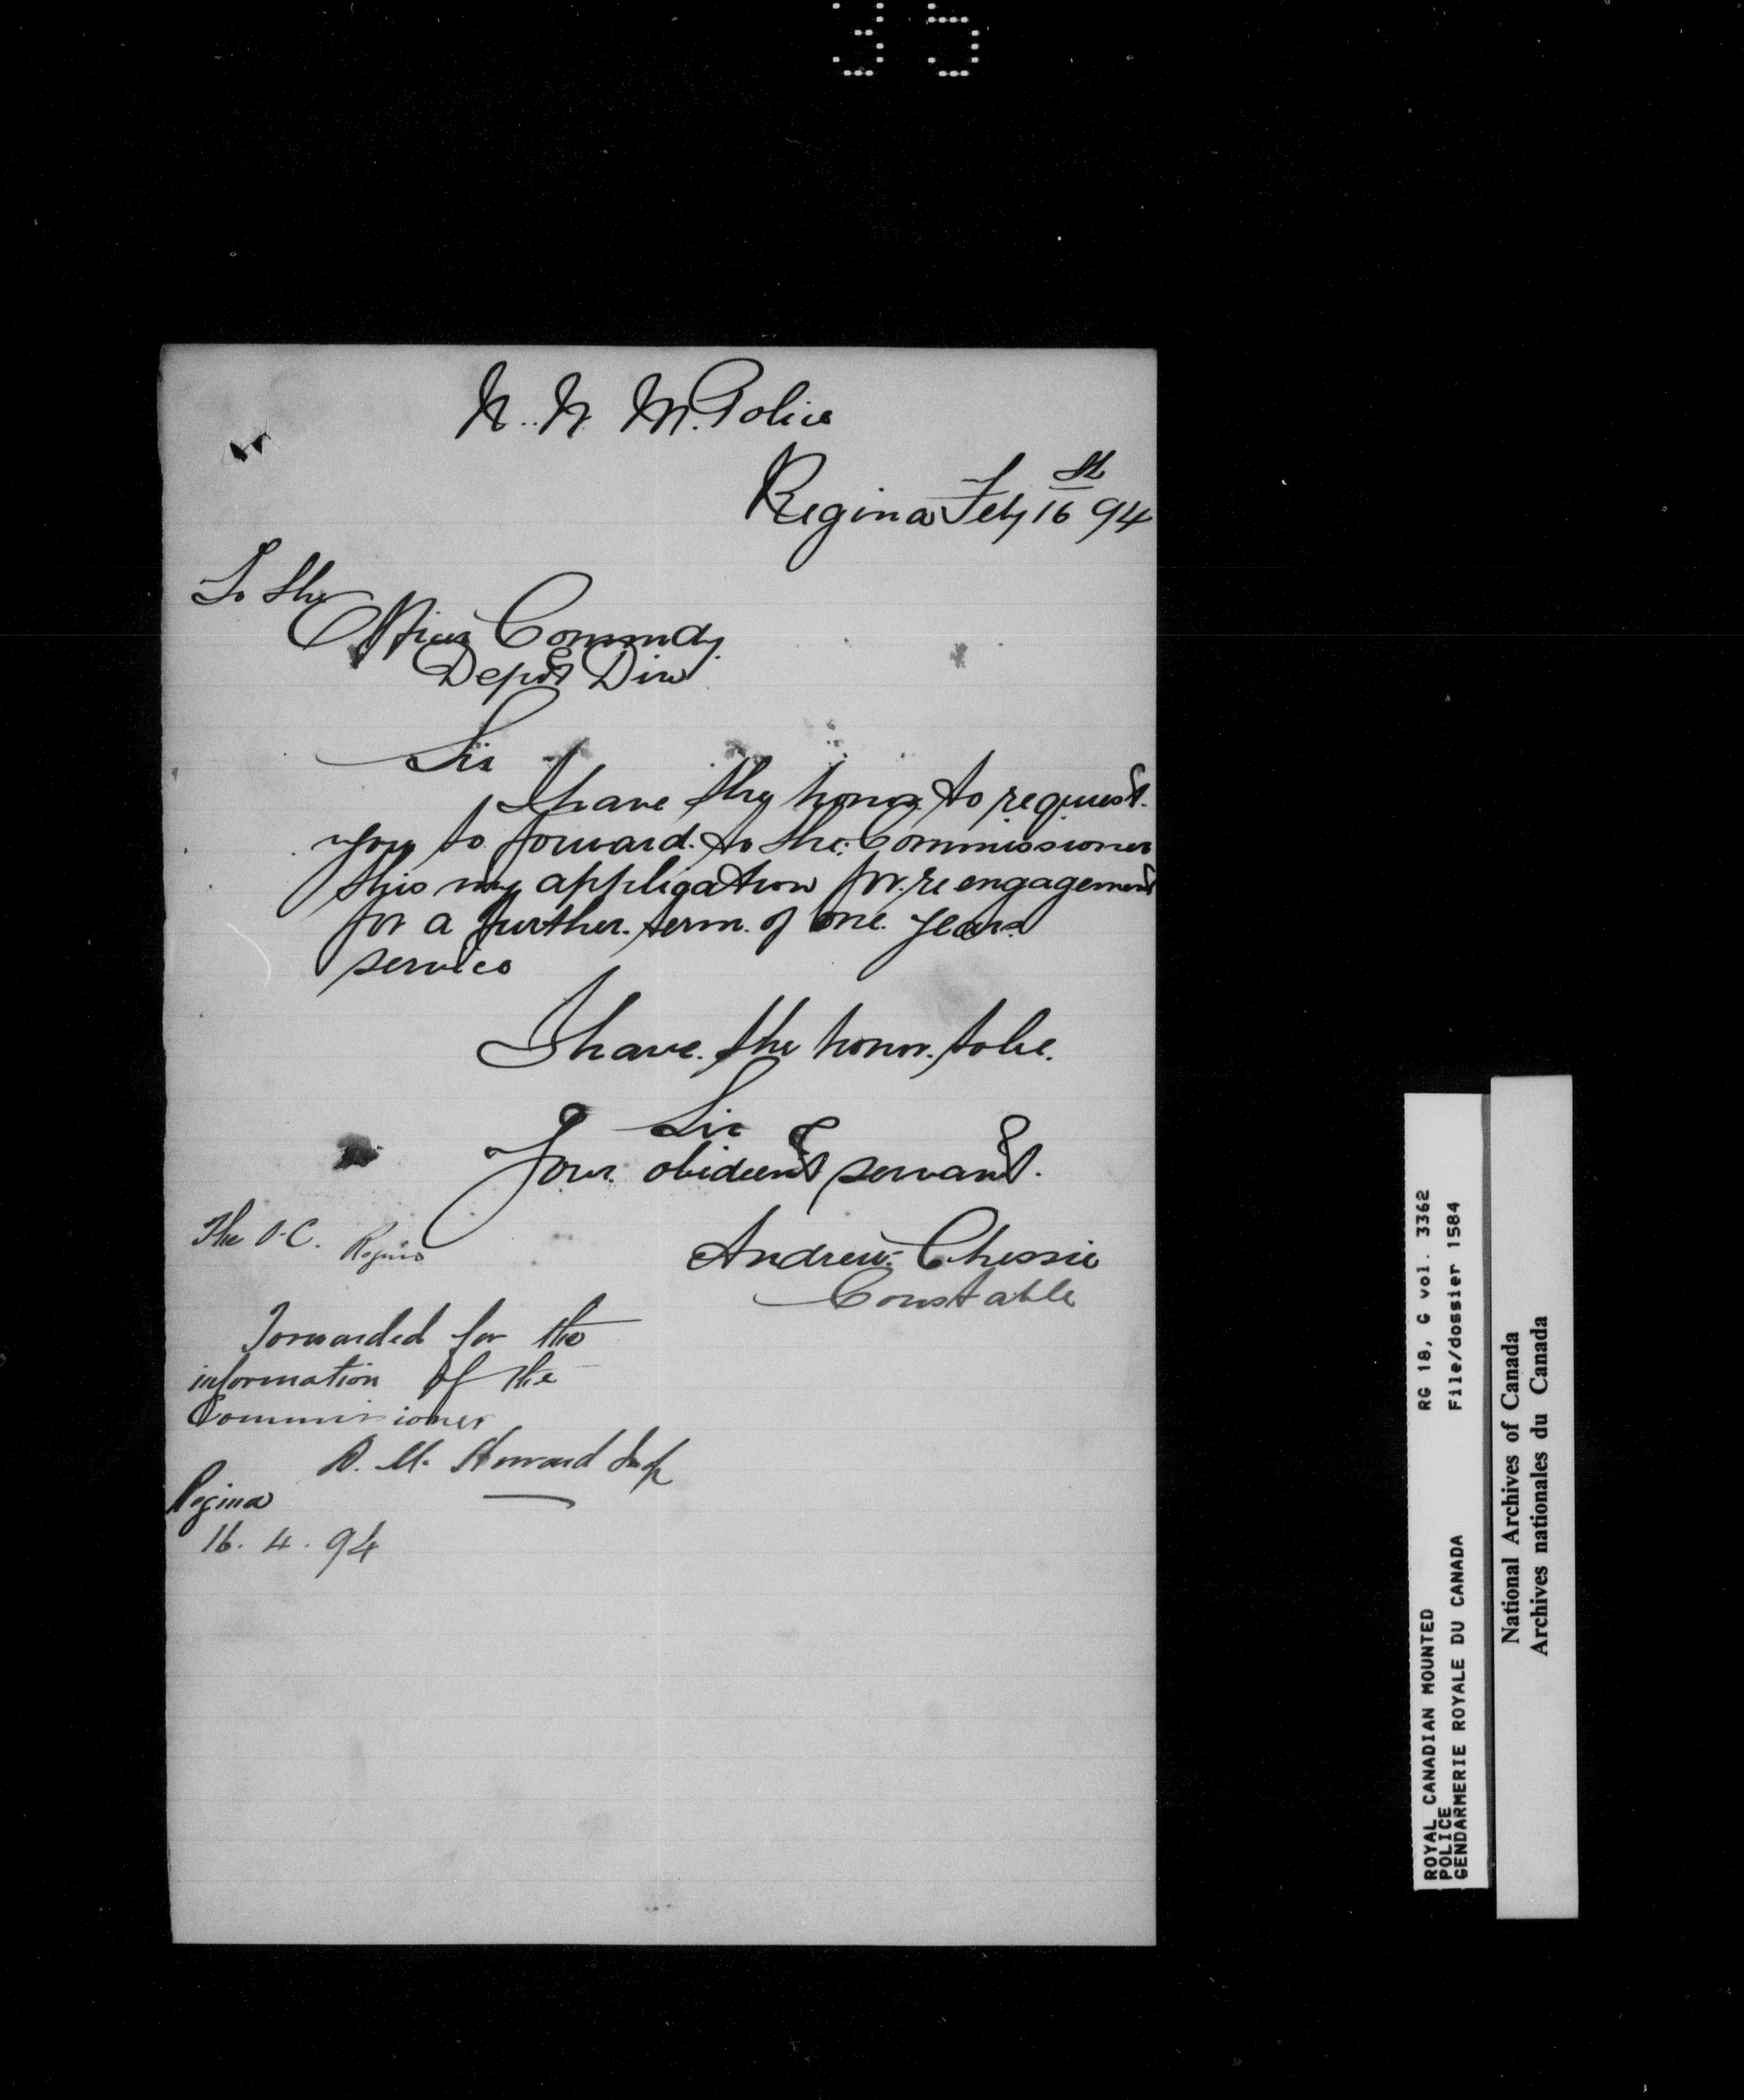 35
N. W. M. Police
Regina Feby 16th 94
To the
Officer Commdg.
Depot Divn
Sir
I have the honor to request.
you to forward. to the. Commissioner
this my application for. re engagement
for a further. term. of one. years.
service
I have. the honor. to be.
Sir
Your. obideent servant.
Andrew. Chessie
Constable
The O.C. Regina
Forwarded for the
information of the
Commissioner
D. M. Howard Insp
Regina
16. 4. 94
ROYAL CANADIAN MOUNTED
POLICE
GENDARMERIE ROYALE DU CANADA
RG 18, G vol. 3362
File/dossier 1584
National Archives of Canada
Archives nationales du Canada